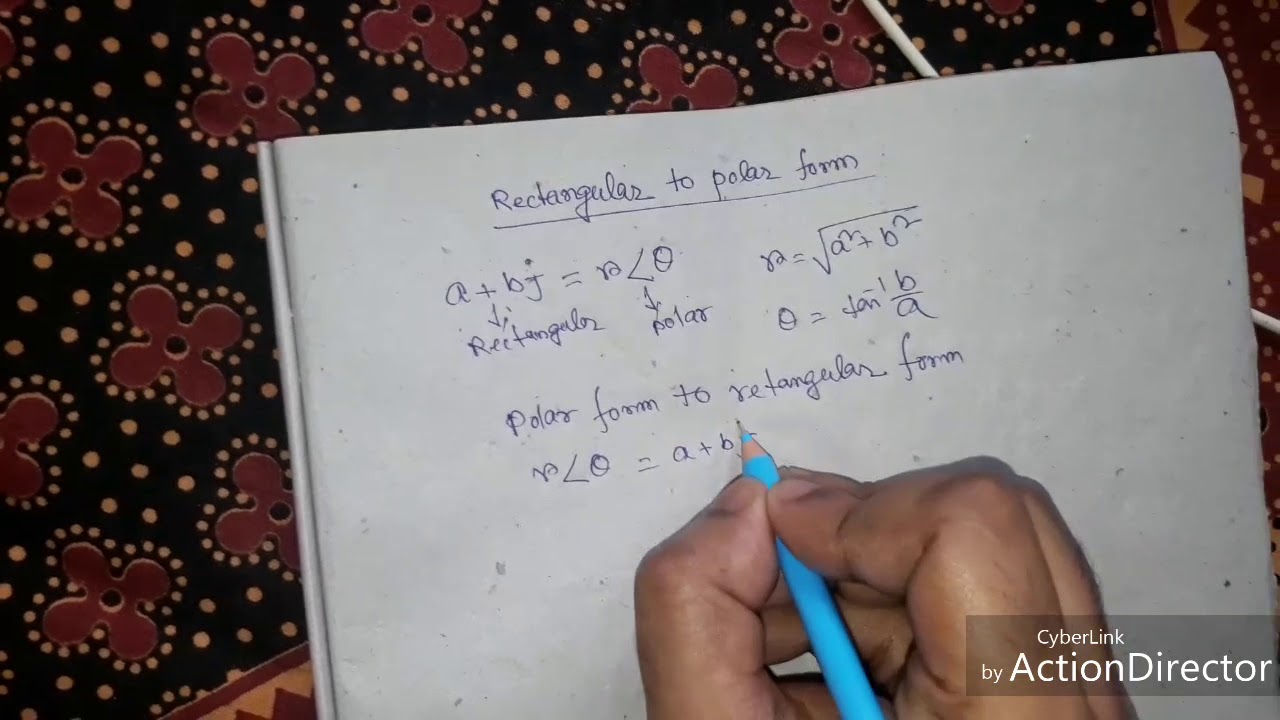 Rectangular to polar form
a + bj = r∠θ
r = √a² + b²
Rectangular
polar
θ = tan⁻¹ b/a
Polar form to retangular form
r∠θ = a + bj
CyberLink
by ActionDirector